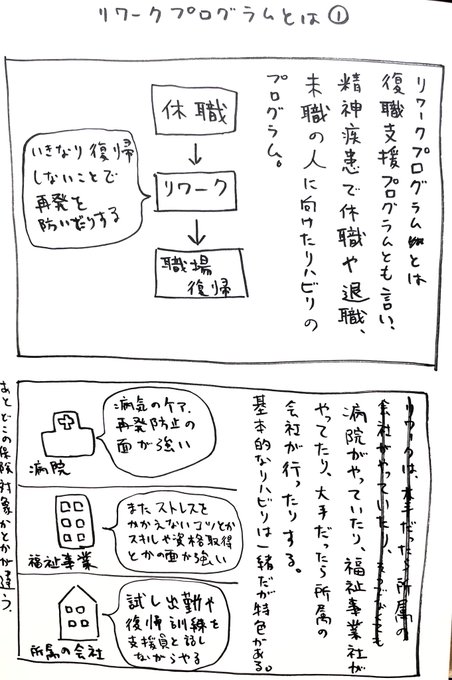 リワークプログラムとは①
リワークプログラムとは
復職支援プログラムとも言い、
精神疾患で休職や退職、
未職の人に向けたリハビリの
プログラム。
休職
リワーク
職場
復帰
いきなり復帰
しないことで
再発を
防いだりする
リワークは、大手だったら所属の
会社がやっていたり、
病院がやっていたり、福祉事業社が
やってたり、大手だったら所属の
会社が行ったりする。
基本的なリハビリは一緒だが特色がある。
病院
病気のケア、
再発防止の
面が強い
福祉事業
またストレスを
かかえないコツとか
スキルや資格取得
とかの面が強い
所属の会社
試し出勤や
復帰訓練を
支援員と話し
ながらやる
あとどこの保険対象かとかが違う。